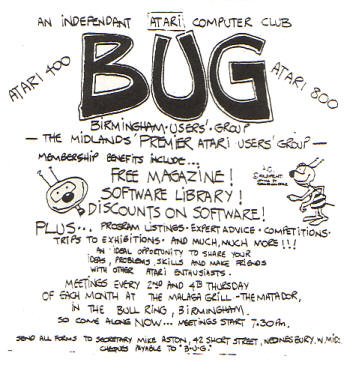 AN INDEPENDANT ATARI COMPUTER CLUB
BUG
ATARI 400
ATARI 800
BIRMINGHAM·USERS'·GROUP
— THE MIDLANDS' PREMIER ATARI USERS' GROUP —
MEMBERSHIP BENEFITS INCLUDE...
FREE MAGAZINE!
SOFTWARE LIBRARY!
DISCOUNTS ON SOFTWARE!
PLUS... PROGRAM LISTINGS·EXPERT ADVICE·COMPETITIONS·
TRIPS TO EXHIBITIONS· AND MUCH, MUCH MORE!!!
AN IDEAL OPPORTUNITY TO SHARE YOUR
IDEAS, PROBLEMS, SKILLS AND MAKE FRIENDS
WITH OTHER ATARI ENTHUSIASTS.
MEETINGS EVERY 2ND AND 4TH THURSDAY
OF EACH MONTH AT THE MALAGA GRILL - THE MATADOR,
IN THE BULL RING, BIRMINGHAM.
SO COME ALONG NOW... MEETINGS START 7.30PM.
SEND ALL FORMS TO SECRETARY MIKE ASTON, 42 SHORT STREET, WEDNESBURY, W.MID.
CHEQUES PAYABLE TO "B·U·G·"